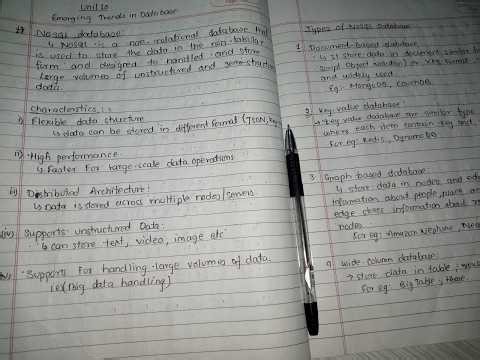 Unit 10
Emerging Trends in Database
NoSQL database:
↳ NoSQL is a non-relational database that
is used to store the data in the non-tabular
form and designed to handled and store
large volumes of unstructured and semi-struct
data.
Characteristics:
i) Flexible data structure
↳ data can be stored in different format (JSON,
ii) High performance
↳ Faster for large-scale data operations
iii) Distributed Architecture:
↳ Data is stored across multiple nodes/servers
iv) Supports unstructured Data:
↳ can store text, video, image etc
v) Supports for handling large volumes of data.
(Big data handling)
Types of NoSQL Database
1 Document-based database
↳ It store data in document similar
Script Object notation) or XML format
and widely used.
Eg:- MongoDB, CouchDB.
2 Key-value database:
→ key value database are similar type
where each item contain key
For eg: Redis, DynamoDB
3 Graph-based database
↳ store data in nodes and edge
information about people, place an
edge stores information about
nodes.
For eg: Amazon Neptune, Neo
4 Wide column database:
→ store data in table,
For eg: BigTable, Hbase.